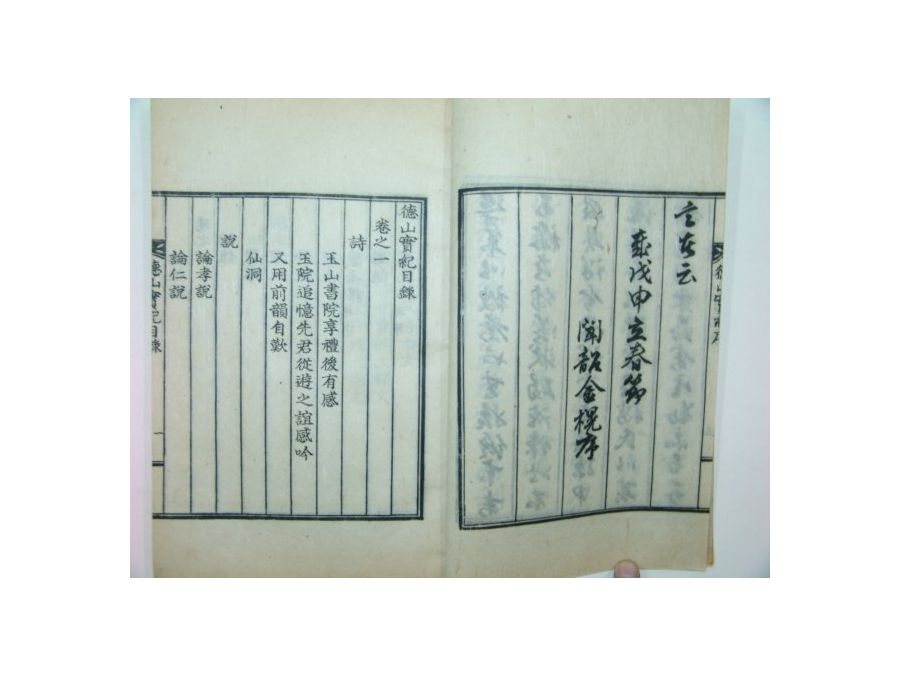 言玄云
歲戊申立春節
聞韶金榥序
德山實紀目錄
卷之一
詩
玉山書院享禮後有感
玉院追憶先君從遊之誼感吟
又用前韻自歎
仙洞
說
論孝說
論仁說
德山實紀目錄
一